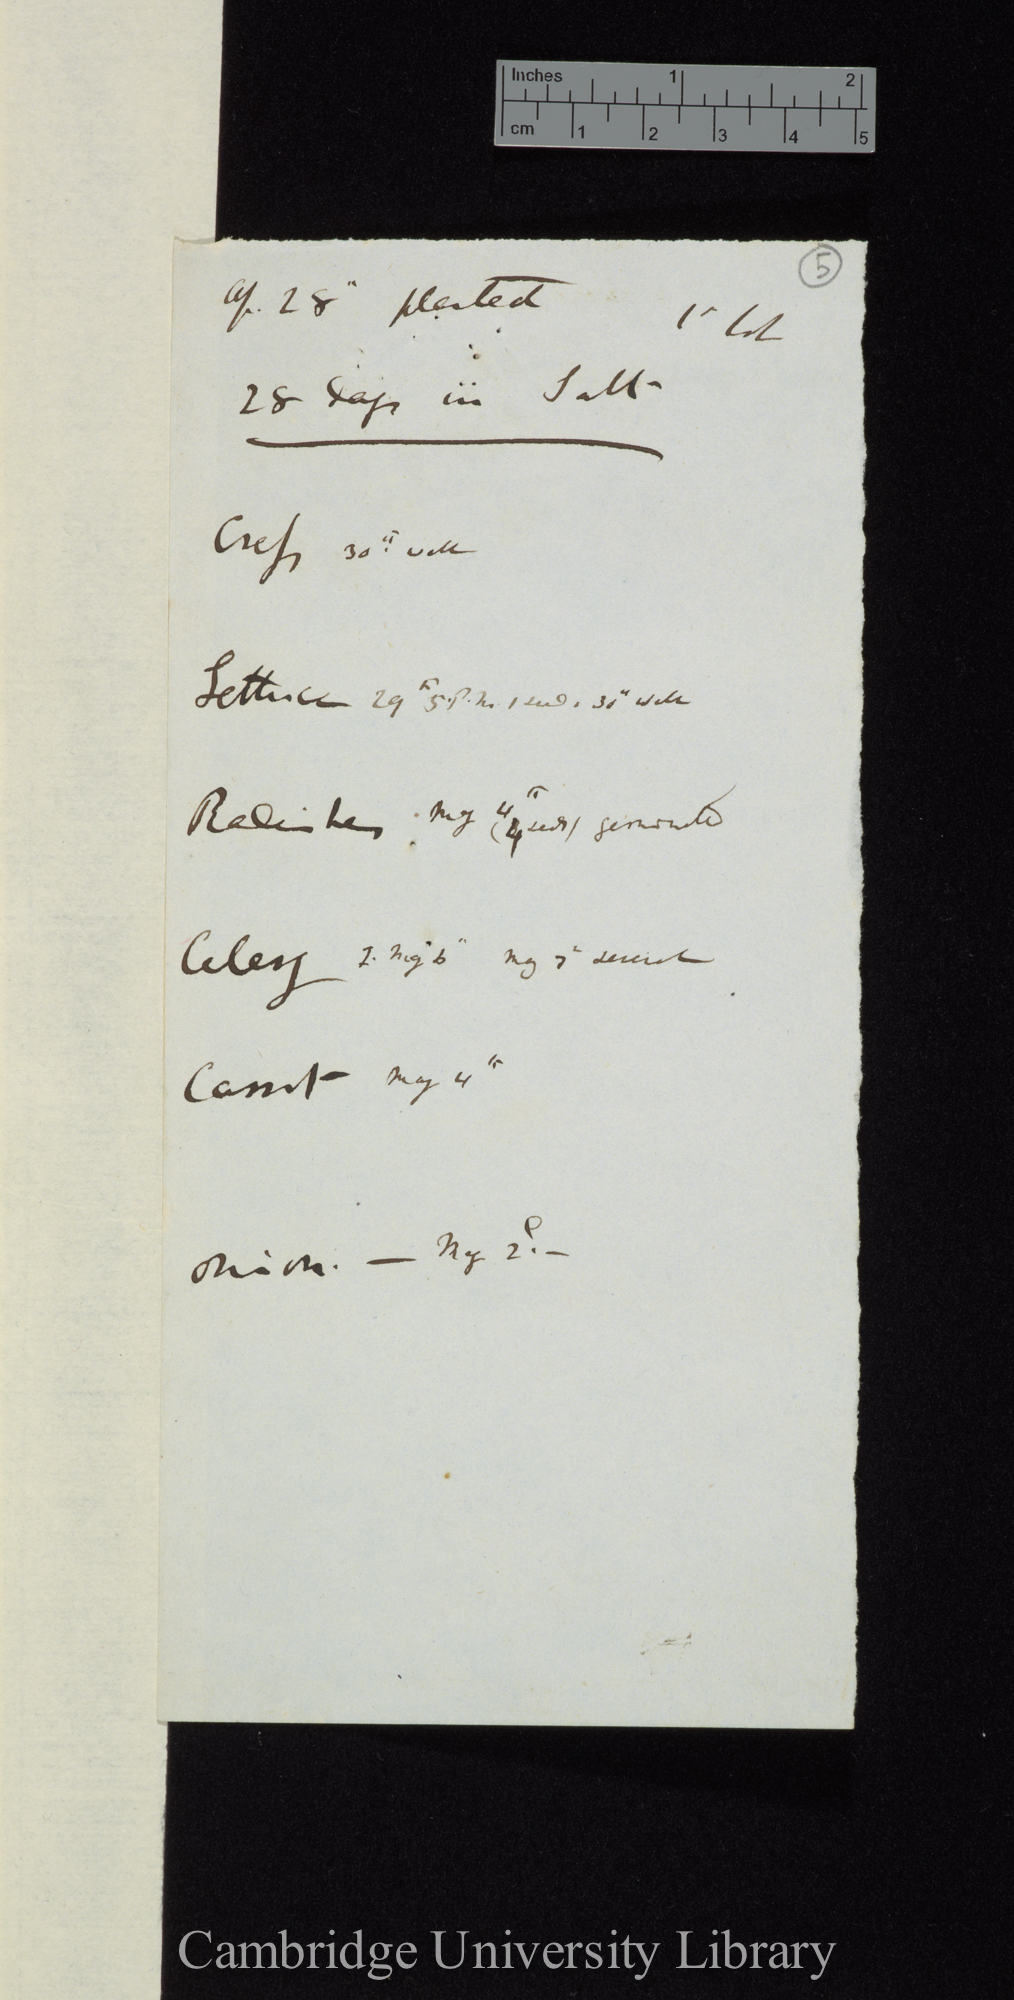 Inches 1 2
cm 1 2 3 4 5
5
Ap. 28th planted 1st lot
28 days in Salt
Cress 30th well
Lettuce 29th 5. P.m. 1 seed. 30th well
Radishes May 4th (4 seeds) germinated
Celery 2. May 6th May 7th several
Carrot May 4th
Onion. — May 2d. —
Cambridge University Library